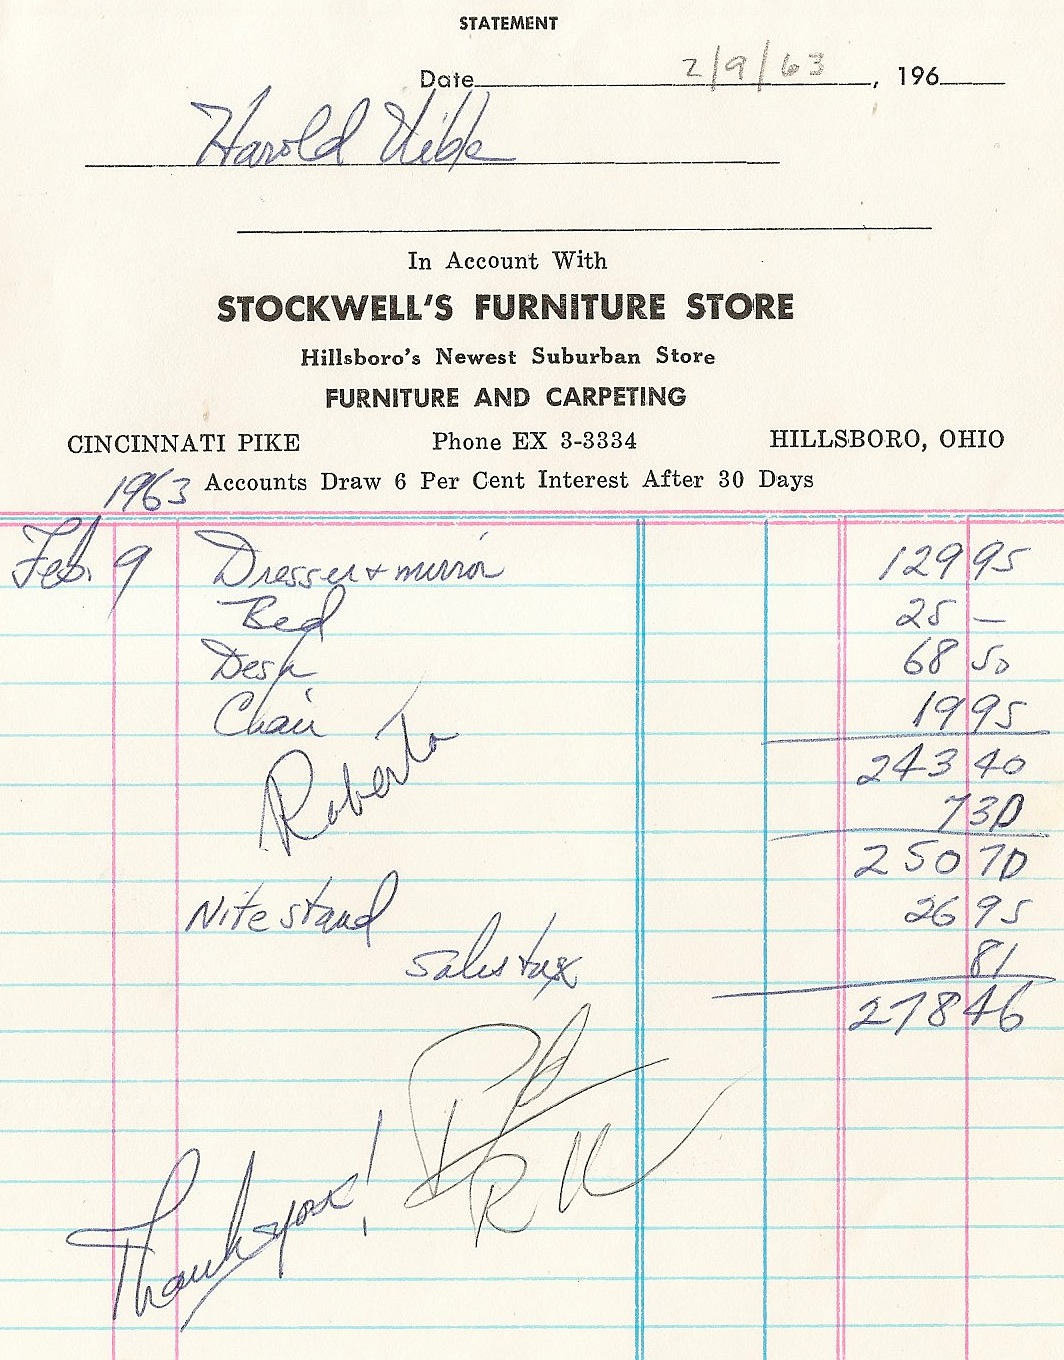 STATEMENT
Date 2/9/63, 196
Harold
In Account With
STOCKWELL'S FURNITURE STORE
Hillsboro's Newest Suburban Store
FURNITURE AND CARPETING
CINCINNATI PIKE Phone EX 3-3334 HILLSBORO, OHIO
1963 Accounts Draw 6 Per Cent Interest After 30 Days
Feb. 9 Dresser + mirror 129 95
Bed 25 —
Desk 68 50
Chair 19 95
243 40
Roberta
7 30
250 70
Nite stand 26 95
Sales tax 81
278 46
Pd
RK
Thank you!